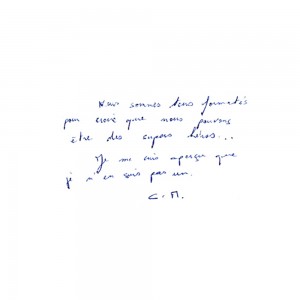 Nous sommes tous formatés
pour croire que nous pouvons
être des supers héros...
Je me suis aperçu que
je n'en suis pas un.
C.M.